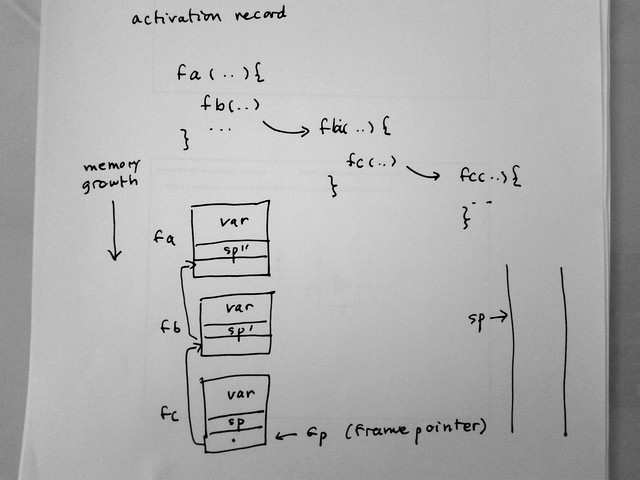 activation record
fa(..){
fb(..)
...
}
fb(..){
fc(..)
}
fc(..){
..
}
memory
growth
fa
var
sp''
fb
var
sp'
sp
fc
var
sp
fp (frame pointer)